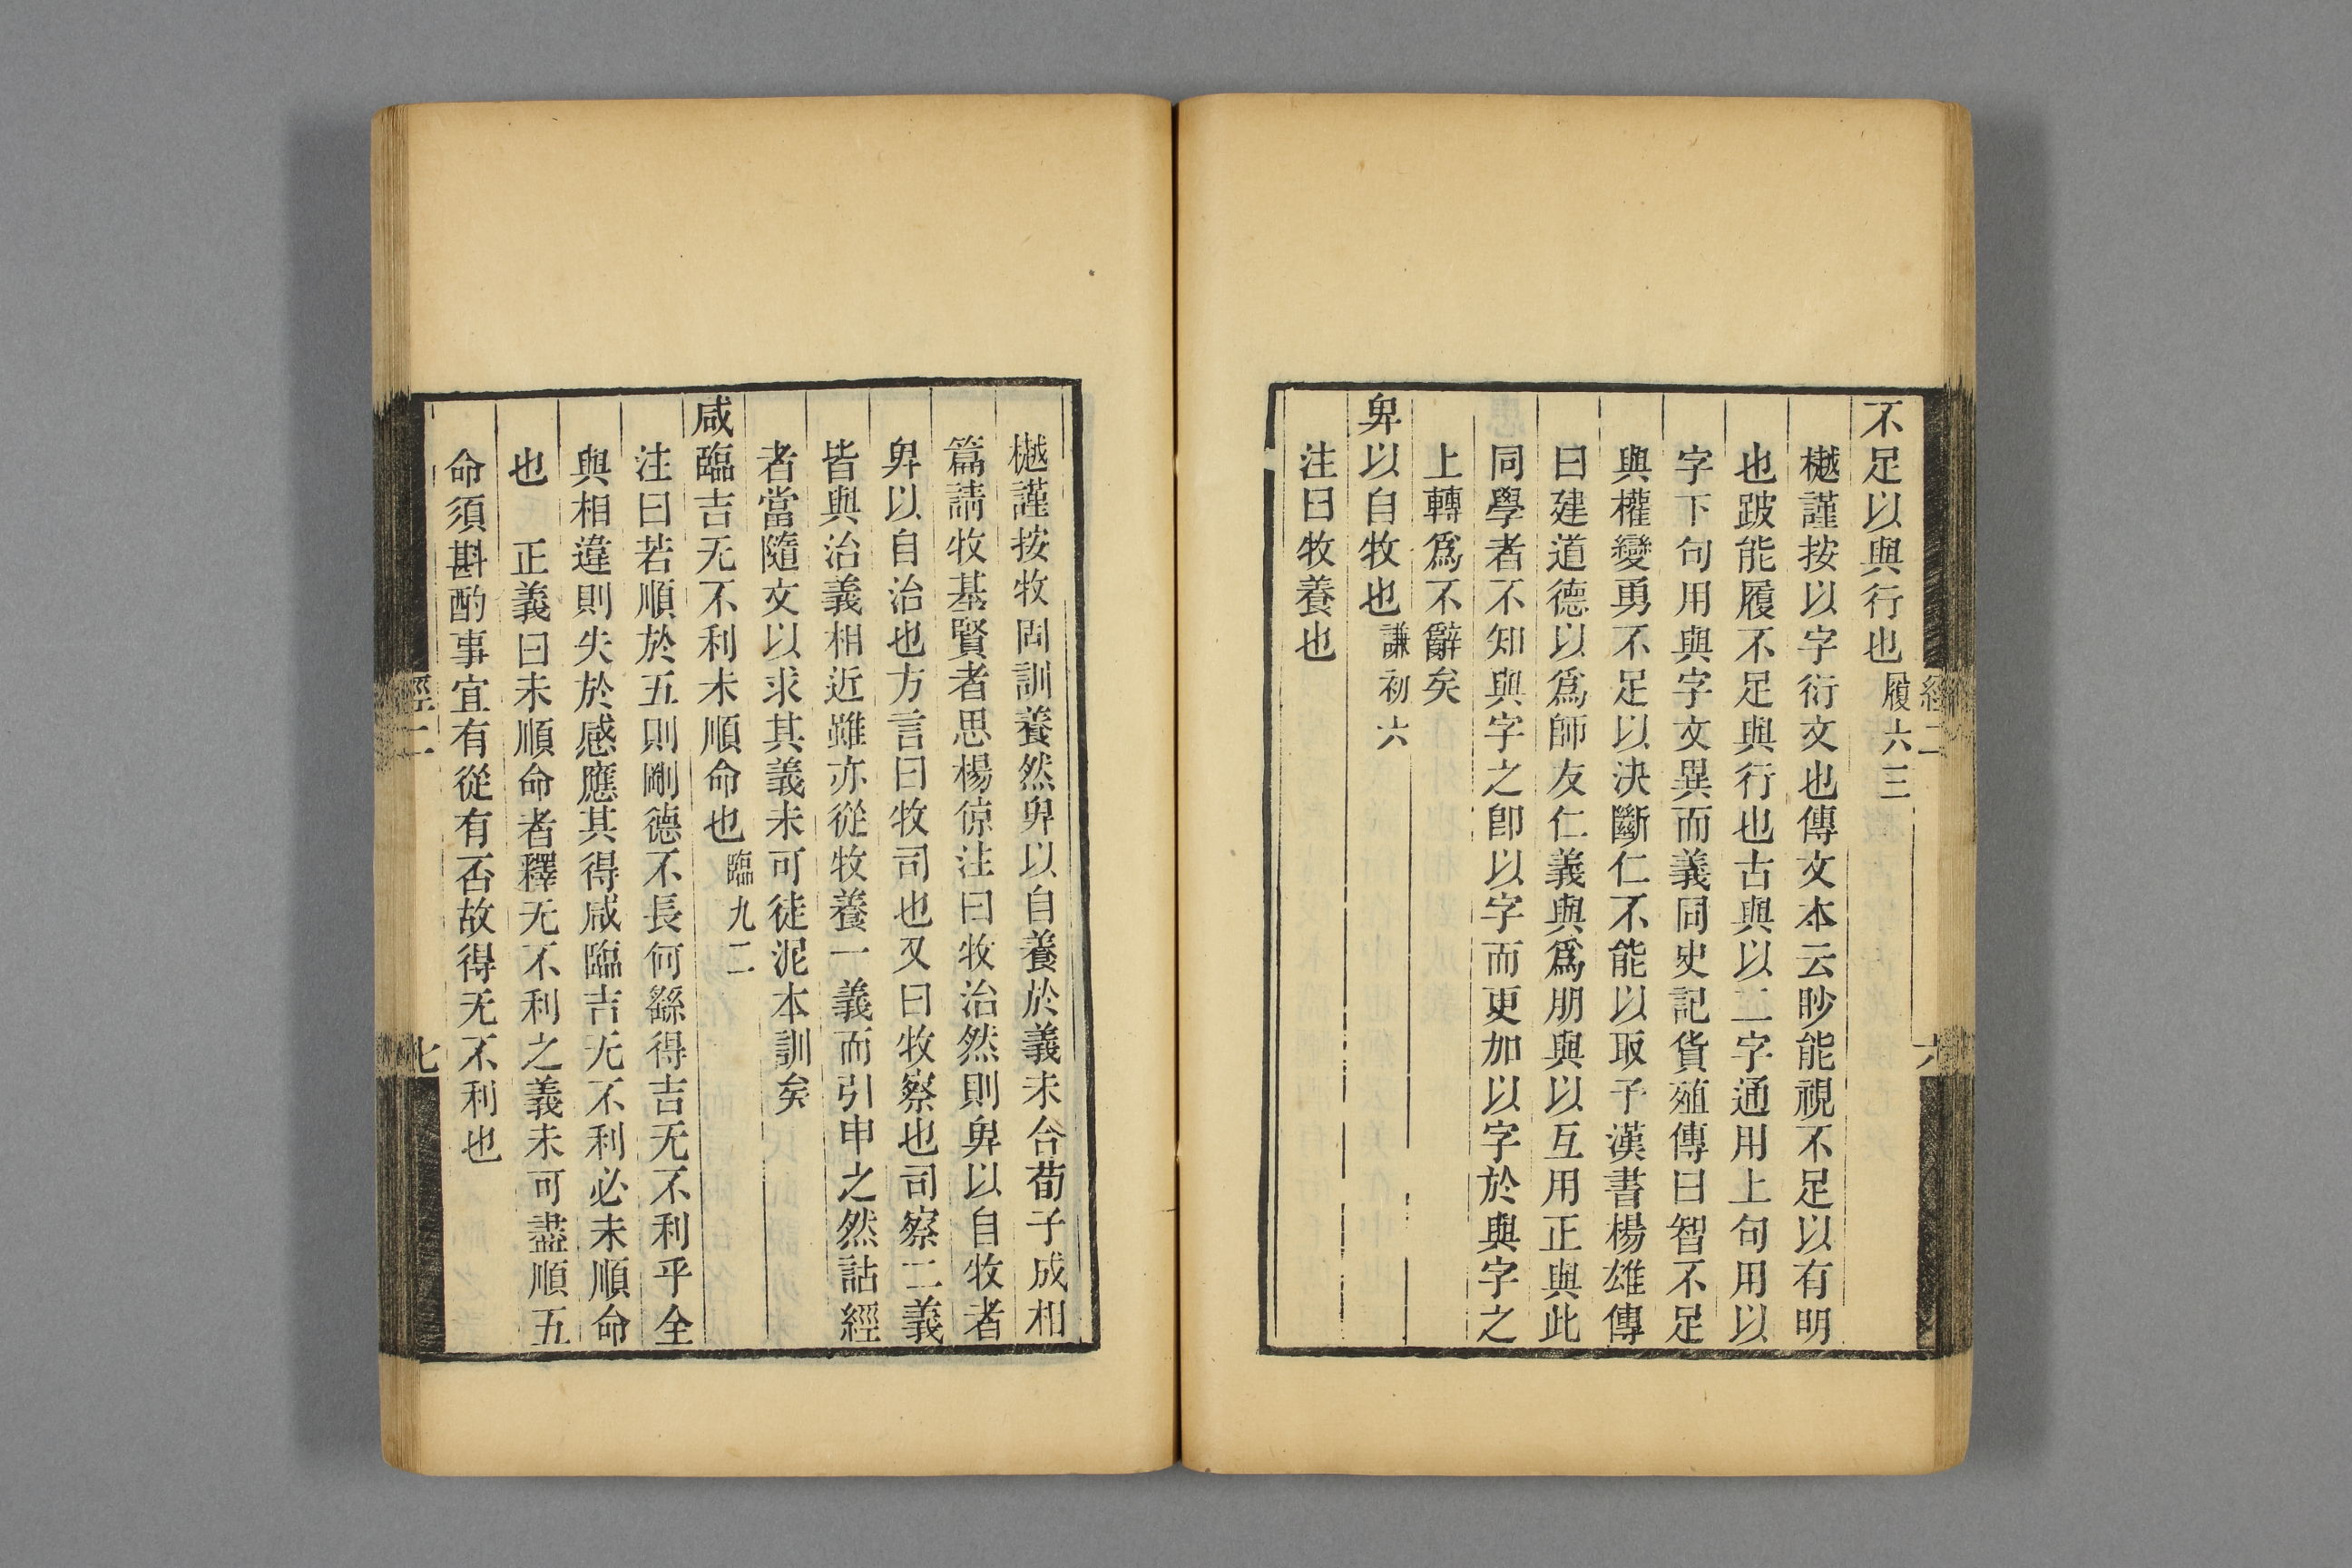 不足以與行也履六三
樾謹按以字衍文也傳文本云眇能視不足以有明
也跛能履不足與行也古與以二字通用上句用以
字下句用與字文異而義同史記貨殖傳曰智不足
與權變勇不足以決斷仁不能以取予漢書楊雄傳
曰建道德以爲師友仁義與爲朋與以互用正與此
同學者不知與字之卽以字而更加以字於與字之
上轉爲不辭矣
卑以自牧也謙初六
注曰牧養也
經二
六
樾謹按牧固訓養然卑以自養於義未合荀子成相
篇請牧基賢者思楊倞注曰牧治然則卑以自牧者
卑以自治也方言曰牧司也又曰牧察也司察二義
皆與治義相近雖亦從牧養一義而引申之然詁經
者當隨文以求其義未可徒泥本訓矣
咸臨吉无不利未順命也臨九二
注曰若順於五則剛德不長何繇得吉无不利乎全
與相違則失於感應其得咸臨吉无不利必未順命
也　正義曰未順命者釋无不利之義未可盡順五
命須斟酌事宜有從有否故得无不利也
經二
七